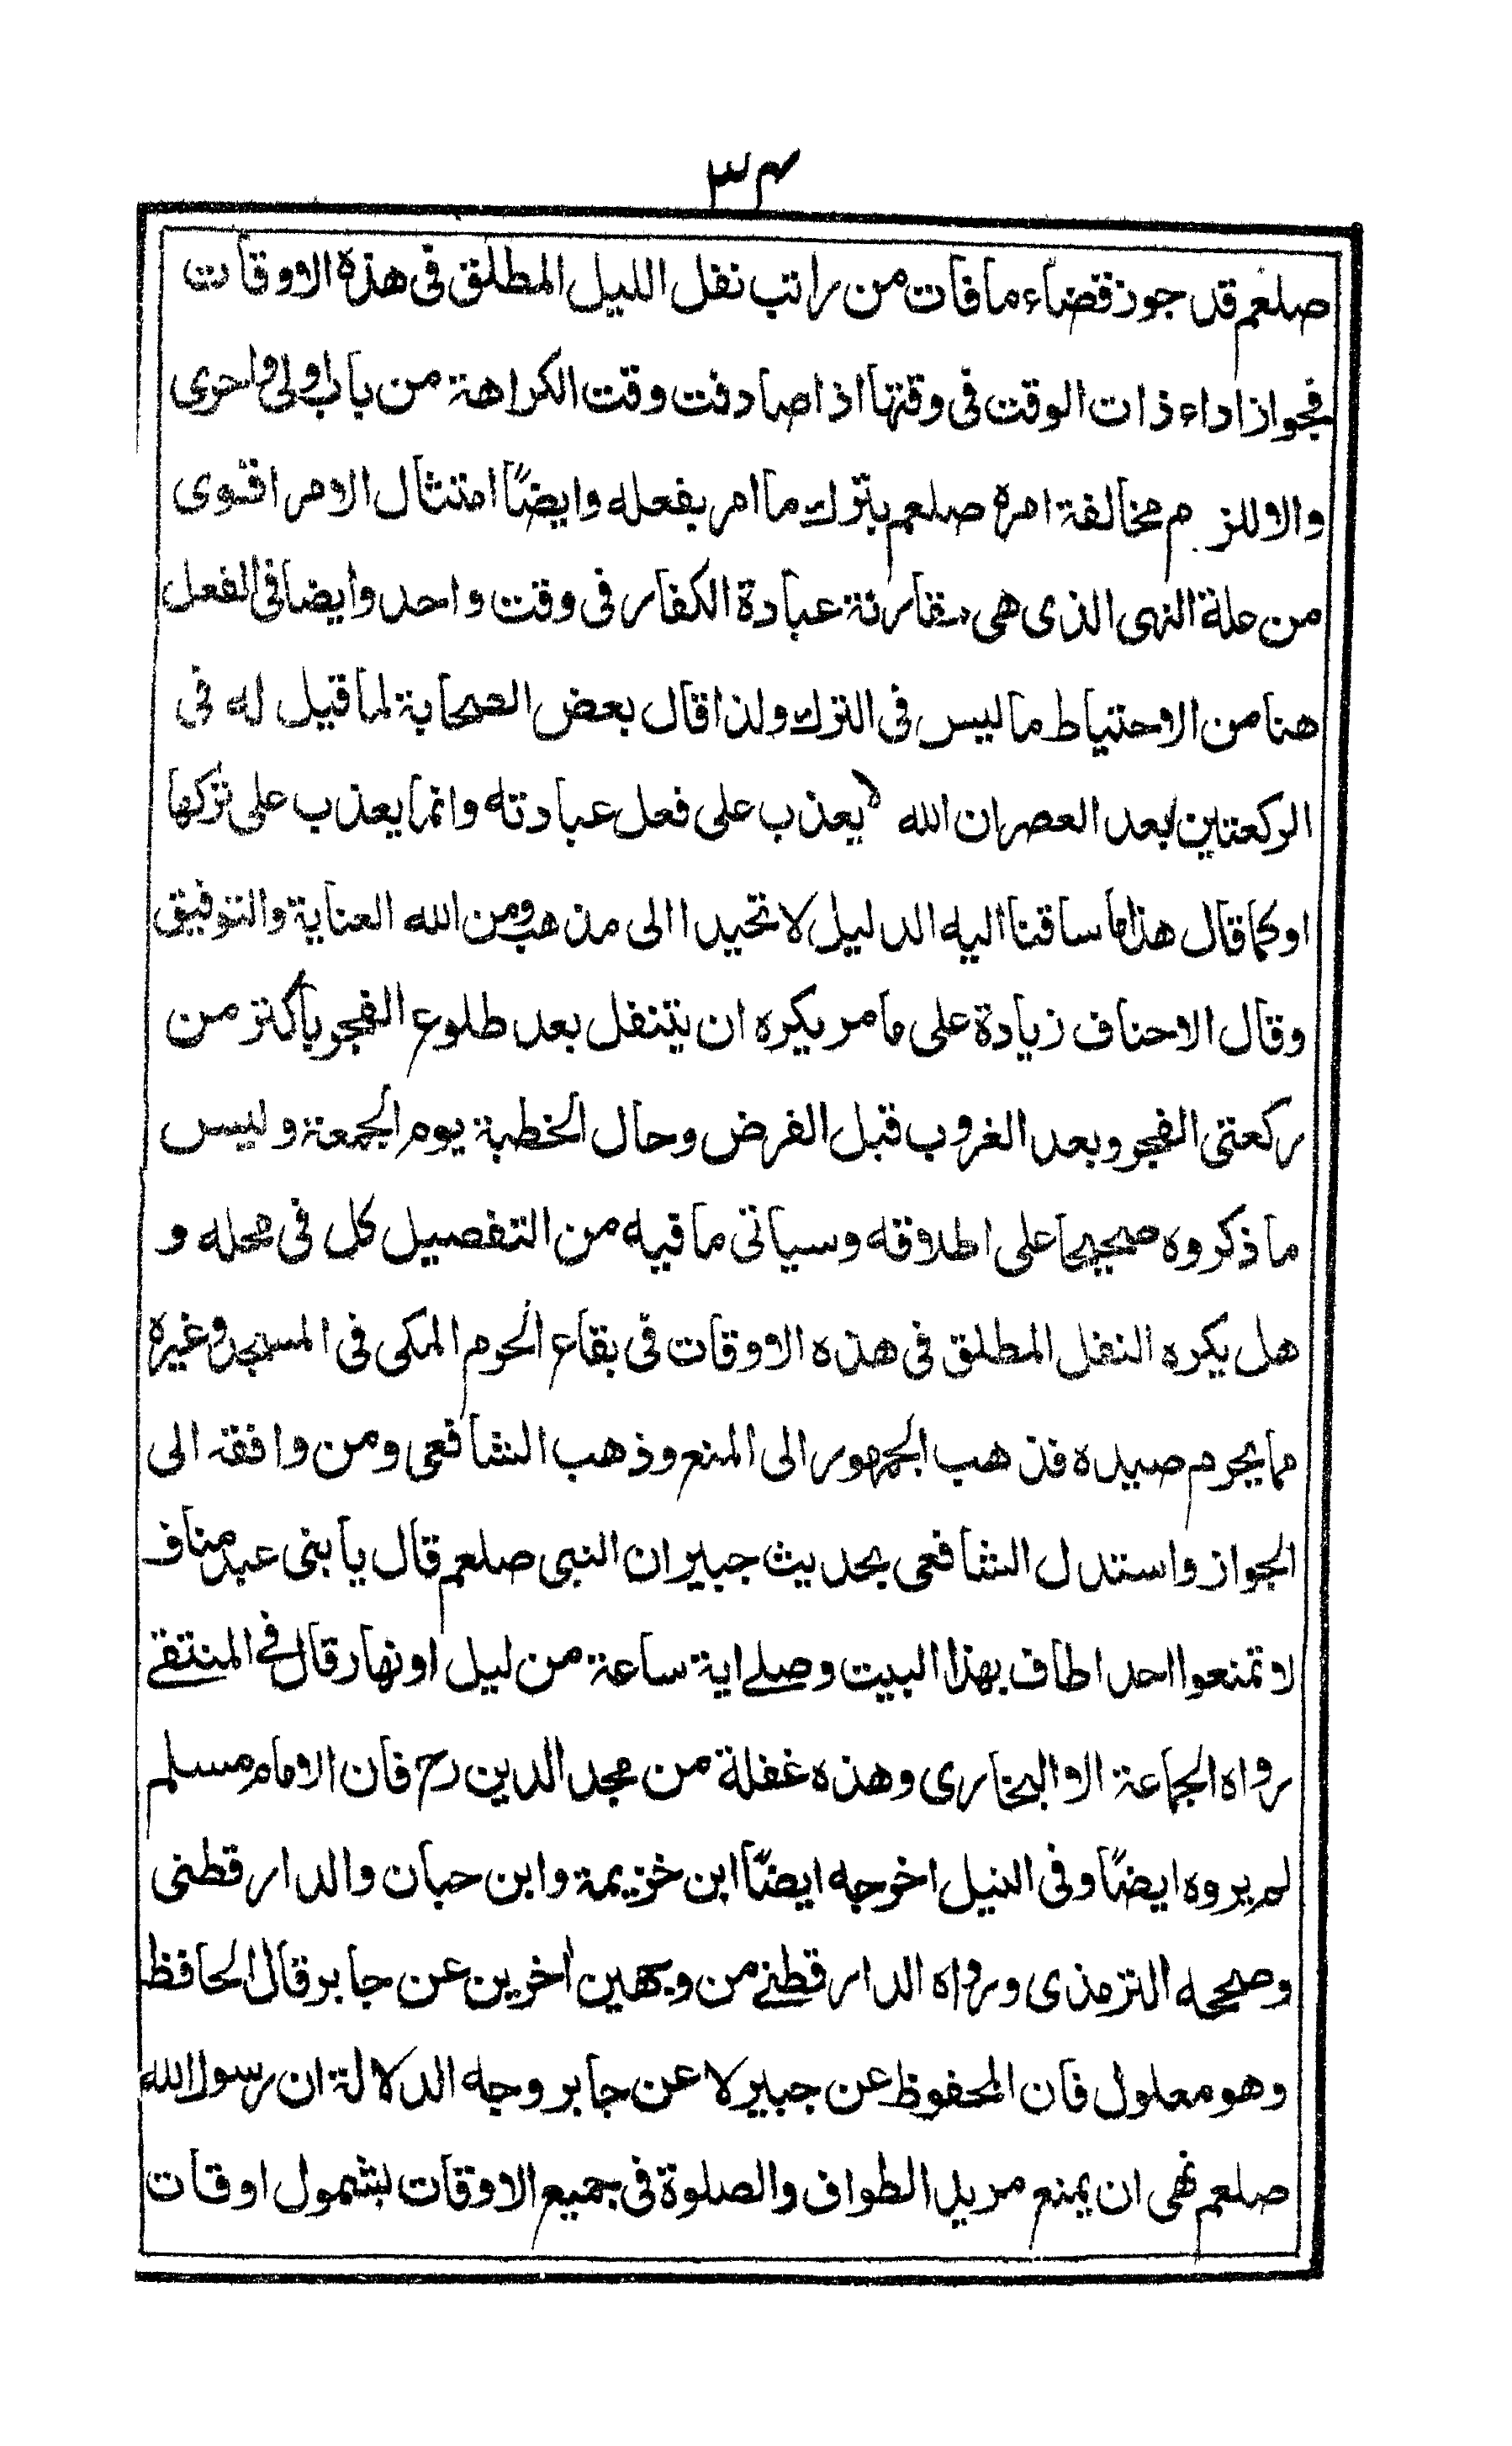 ٣٤
صلعم قد جوز قضاء ما فات من راتب نفل الليل المطلق فى هذه الاوقات
فجواز اداء ذات الوقت فى وقتها اذا صادفت وقت الكراهة من باب اولى واحرى
والا للزم مخالفة امره صلعم بترك ما امر بفعله وايضًا امتثال الامر اقوى
من علة النهى الذى هى مقارنة عبادة الكفار فى وقت واحد وايضا فى الفعل
هنا من الاحتياط ما ليس فى الترك ولذا قال بعض الصحابة لما قيل له فى
الركعتين بعد العصر ان الله لا يعذب على فعل عبادته وانما يعذب على تركها
او كما قال هذا ما ساقنا اليه الدليل لا تحيدا الى مذهب ومن الله العناية والتوفيق
وقال الاحناف زيادة على ما مر يكره ان يتنفل بعد طلوع الفجر باكثر من
ركعتى الفجر وبعد الغروب قبل الفرض وحال الخطبة يوم الجمعة وليس
ما ذكروه صحيحا على اطلاقه وسياتى ما فيه من التفصيل كل فى محله و
هل يكره النفل المطلق فى هذه الاوقات فى بقاع الحرم المكى فى المسجد وغيره
مما يحرم صيده فذهب الجمهور الى المنع وذهب الشافعى ومن وافقه الى
الجواز واستدل الشافعى بحديث جبير ان النبى صلعم قال يا بنى عبد مناف
لا تمنعوا احدا طاف بهذا البيت وصلے اية ساعة من ليل او نهار قال فے المنتقے
رواه الجماعة الا البخارى وهذه غفلة من مجد الدين رح فان الامام مسلم
لم يروه ايضًا وفى النيل اخرجه ايضًا ابن خزيمة وابن حبان والدارقطنى
وصححه الترمذى ورواه الدارقطنے من وجهين اٰخرين عن جابر قال الحافظ
وهو معلول فان المحفوظ عن جبير لا عن جابر وجه الدلالة ان رسول الله
صلعم نهى ان يمنع مريد الطواف والصلوة فى جميع الاوقات لشمول اوقات